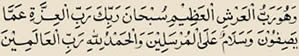 وَهُوَ رَبُّ الْعَرْشِ الْعَظِيمِ سُبْحَانَ رَبِّكَ رَبِّ الْعِزَّةِ عَمَّا
يَصِفُونَ وَسَلَامٌ عَلَى الْمُرْسَلِينَ وَالْحَمْدُ لِلَّهِ رَبِّ الْعَالَمِينَ